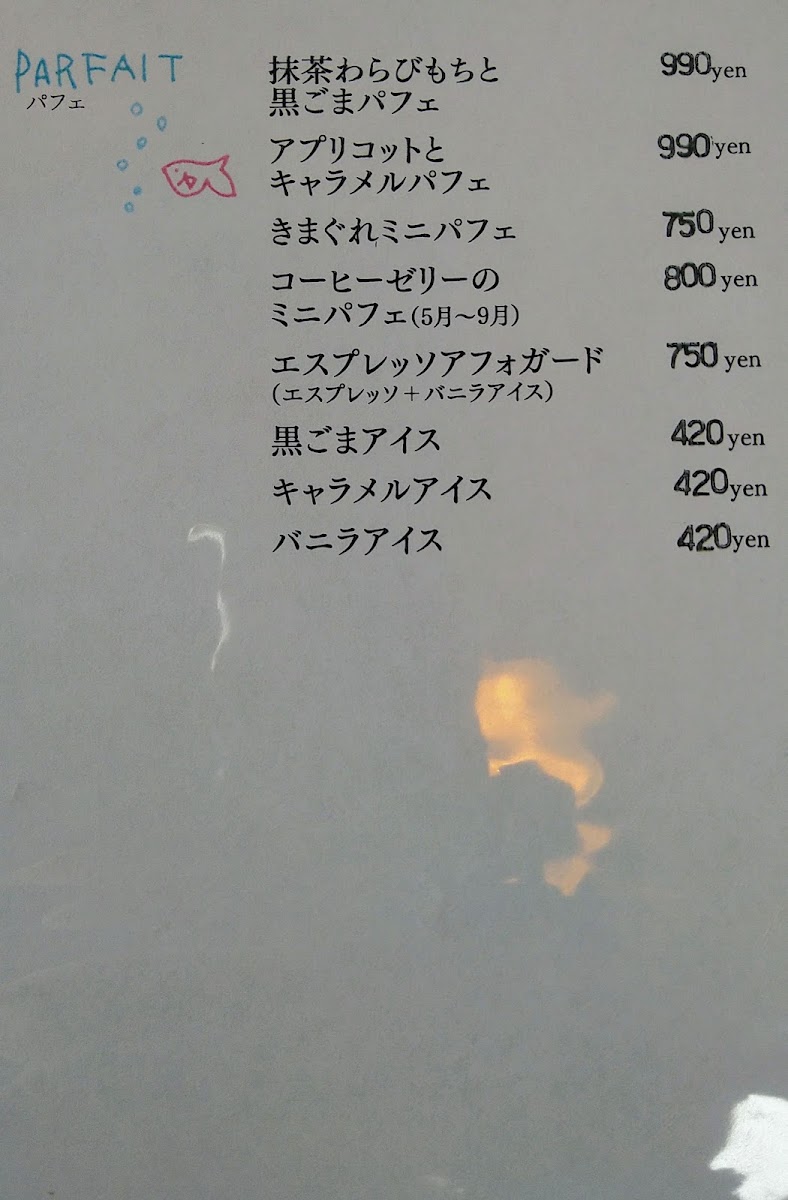 PARFAIT
パフェ
抹茶わらびもちと 990yen
黒ごまパフェ
アプリコットと 990yen
キャラメルパフェ
きまぐれミニパフェ 750yen
コーヒーゼリーの 800yen
ミニパフェ(5月〜9月)
エスプレッソアフォガード 750yen
(エスプレッソ+バニラアイス)
黒ごまアイス 420yen
キャラメルアイス 420yen
バニラアイス 420yen